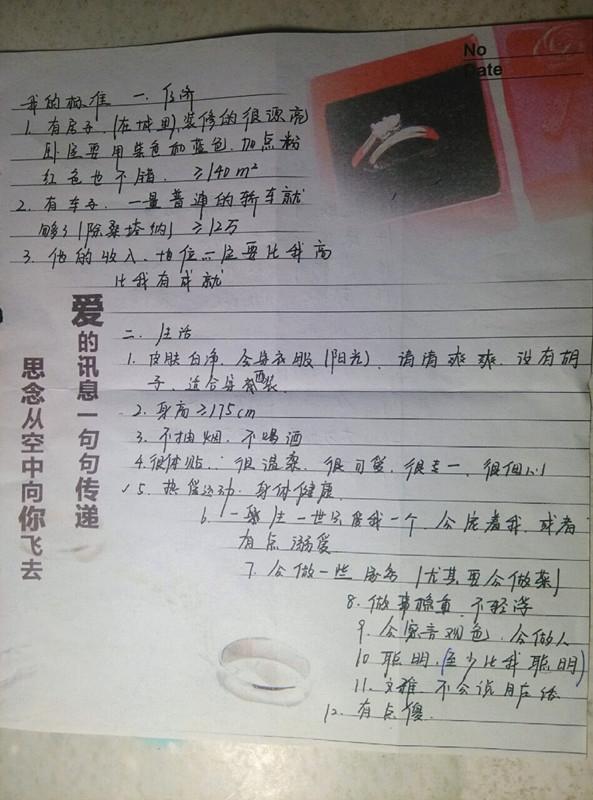 No
Date
我的标准 一. 经济
1. 有房子, (在城里), 装修的很漂亮
卧室要用紫色和蓝色, 加点粉
红色也不错. ≥140m²
2. 有车子, 一量普通的轿车就
够了(除桑塔纳) ≥12万
3. 他的收入、地位一定要比我高
比我有成就
二. 生活
1. 皮肤白净, 会穿衣服(阳光), 清清爽爽, 没有胡
子, 适合穿西装.
2. 身高≥175cm
3. 不抽烟. 不喝酒
4. 很体贴. 很温柔. 很可爱. 很专一. 很细心
5. 热爱运动. 身体健康
6. 一生一世只爱我一个, 会宠着我, 或者
有点溺爱
7. 会做一些家务(尤其要会做菜)
8. 做事稳重, 不轻浮
9. 会察言观色, 会做人
10 聪明, (至少比我聪明)
11. 文雅 不会说脏话
12. 有点傻.
爱的讯息一句句传递
思念从空中向你飞去